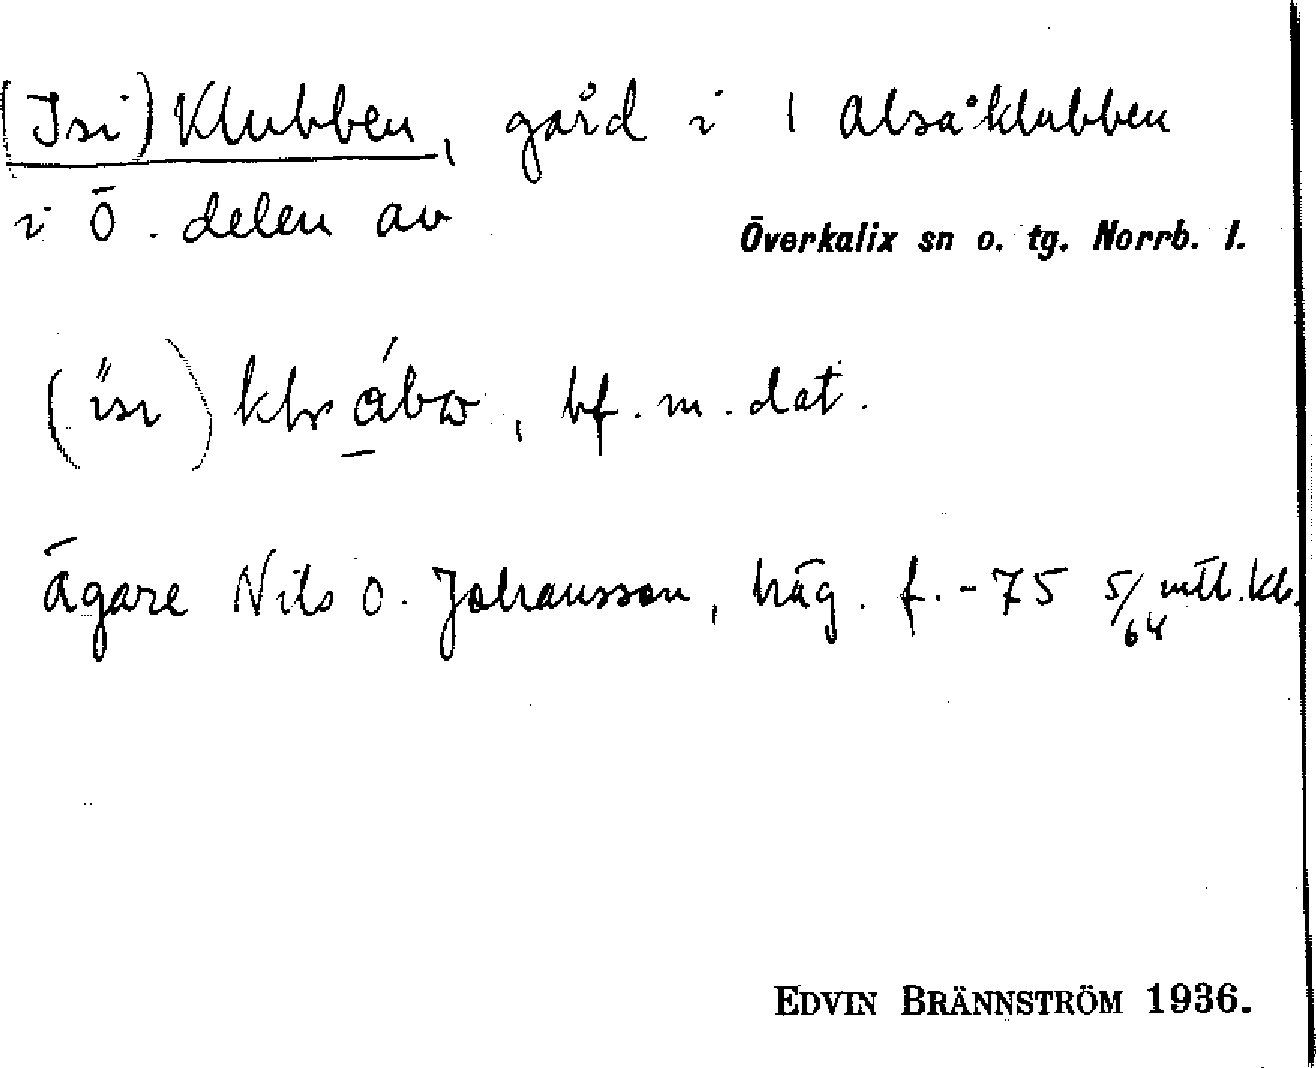 (Isi) Klubben, gård i 1 Alsåklubben
i Ö. delen av
Överkalix sn o. tg. Norrb. l.
bf. m. dat.
ägare Nils O. Johansson, häg. f. -75 5/64 mtl. kb.
EDVIN BRÄNNSTRÖM 1936.